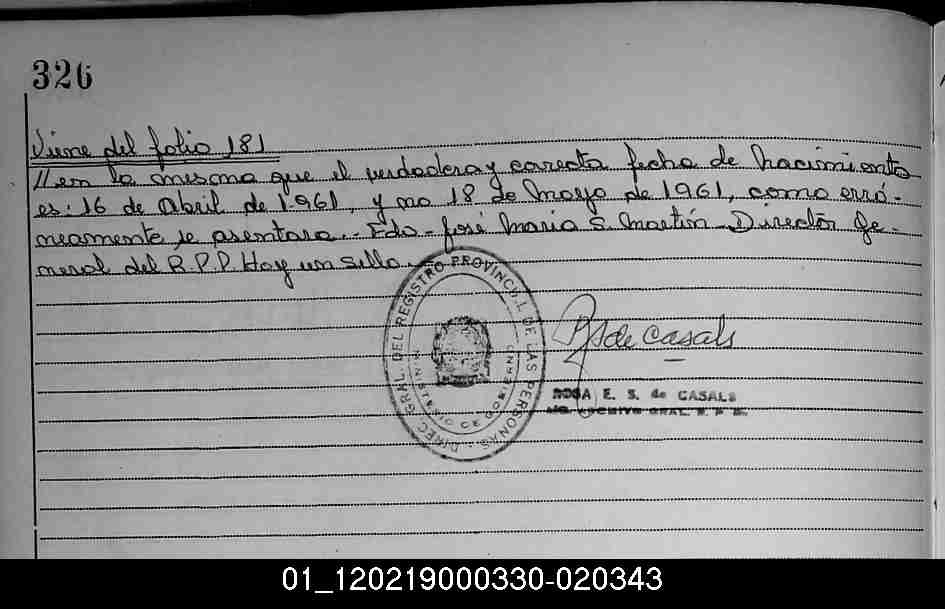 326
Viene del folio 181
//en la misma que el verdadera y correcta fecha de Nacimiento
es: 16 de Abril de 1961, y no 18 de Mayo de 1961, como erró-
neamente se asentara.- Fdo- José Maria S. Martín- Director Ge-
neral del R.P.P. Hay un Sello.
DIREC. GRAL. DEL REGISTRO PROVINCIAL DE LAS PERSONAS
MINISTERIO DE GOBIERNO
RS de Casals
ROSA E. S. de CASALS
ARCHIVO GRAL. R. P. P.
01_120219000330-020343